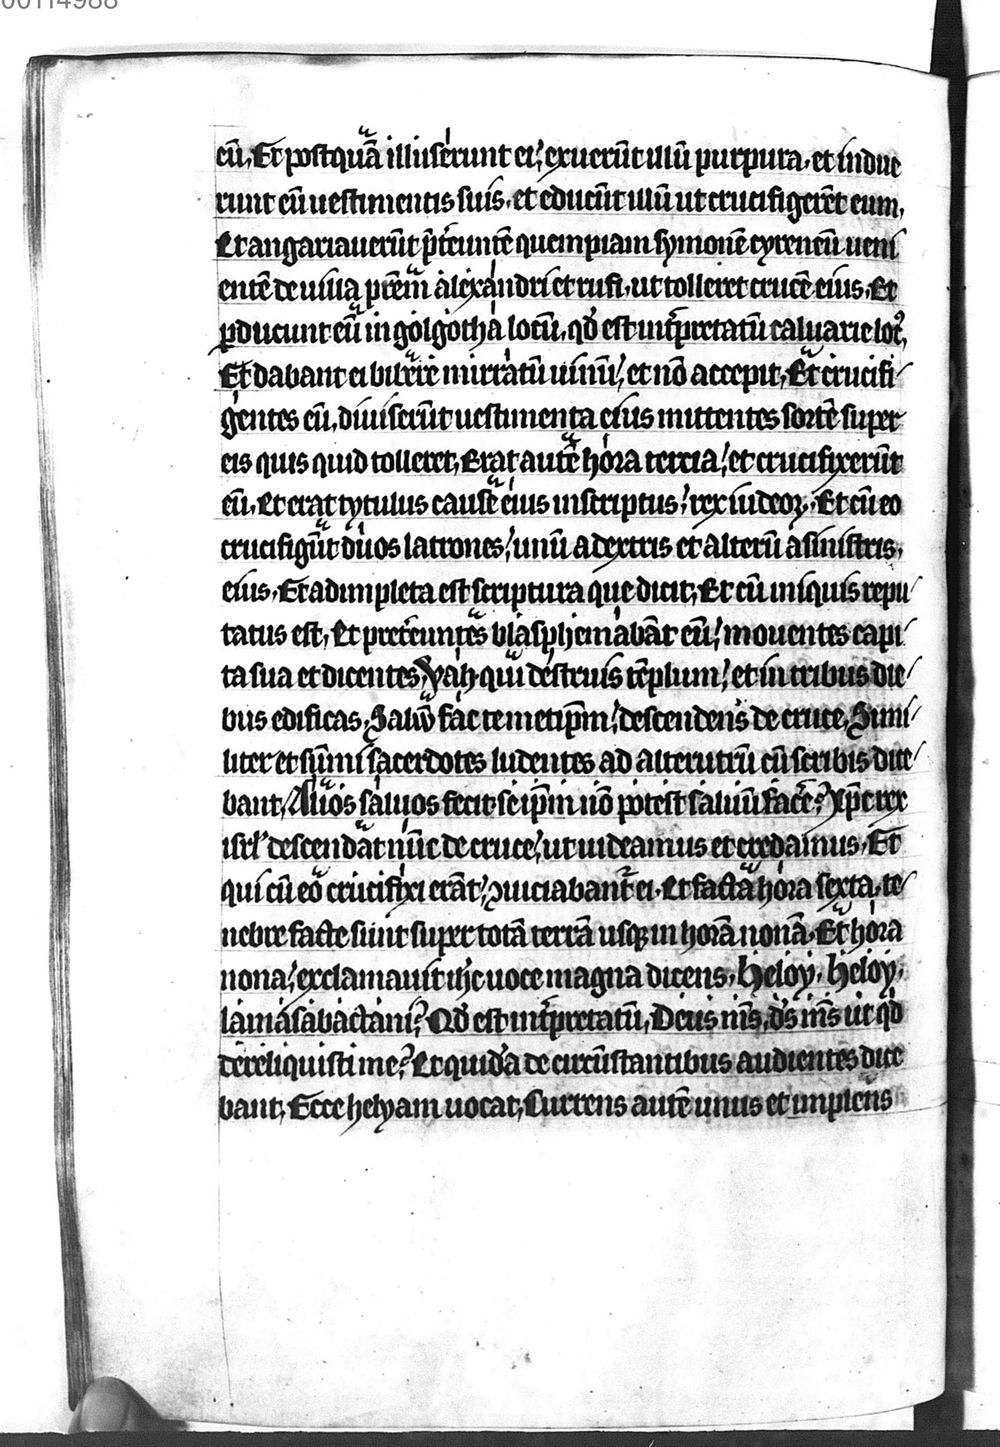 00114988
eū. Et postquā illuserunt ei; exuerūt illū purpura. et indue
runt eū uestimentis suis. et educūt illū ut crucifigerēt eum.
Et angariauerūt p̄tereuntē quempiam symonē cyreneū ueni
entē de uilla pr̄em alexandri et rufi. ut tolleret crucē eius. Et
ꝑducunt eū in golgotha locū, qđ est int̄pretatū caluarie locꝰ.
Et dabant ei bibere mirratū uinū; et nō accepit. Et crucifi
gentes eū, diuiserūt uestimenta eius mittentes sortē super
eis quis quid tolleret. Erat autē hora tercia; et crucifixerūt
eū. Et erat tytulus cause eius inscriptus; rex iudeoꝝ. Et cū eo
crucifigūt duos latrones; unū a dextris et alterū a sinistris.
eius. Et adimpleta est scriptura que dicit; Et cū iniquis repu
tatus est. Et pretēuntes blasphemabāt eū; mouentes capi
ta sua et dicentes. Vah qui destruis tēplum; et in tribus die
bus edificas. Saluū fac temetip̄m; descendens de cruce. Simi
liter et sūmi sacerdotes ludentes ad alterutrū cū scribis dice
bant. Alios saluos fecit se ip̄m nō potest saluū facē? Xp̄c rex
isrł descendat nūc de cruce; ut uideamus et credamus. Et
qui cū eo crucifixi erāt; ꝯuiciabant ei. Et facta hora sexta. te
nebre facte sunt super totā terrā usqꝫ in horā nonā. Et hora
nona; exclamauit ih̄c uoce magna dicens. heloy. heloy.
lama sabactani? Qđ est int̄pretatū. Deus m̄s, d̄s m̄s ut qđ
dereliquisti me? Et quidā de circūstantibus audientes dice
bant; Ecce helyam uocat. Currens autē unus et implens